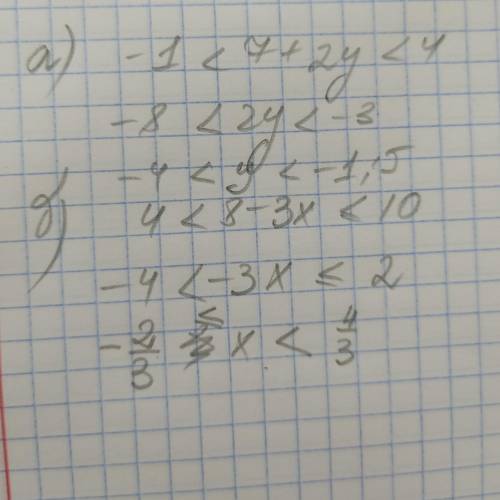 а) -1 < 7 + 2y < 4
-8 < 2y < -3
-4 < y < -1,5
б) 4 < 8 - 3x ≤ 10
-4 < -3x ≤ 2
-2/3 ≤ x < 4/3